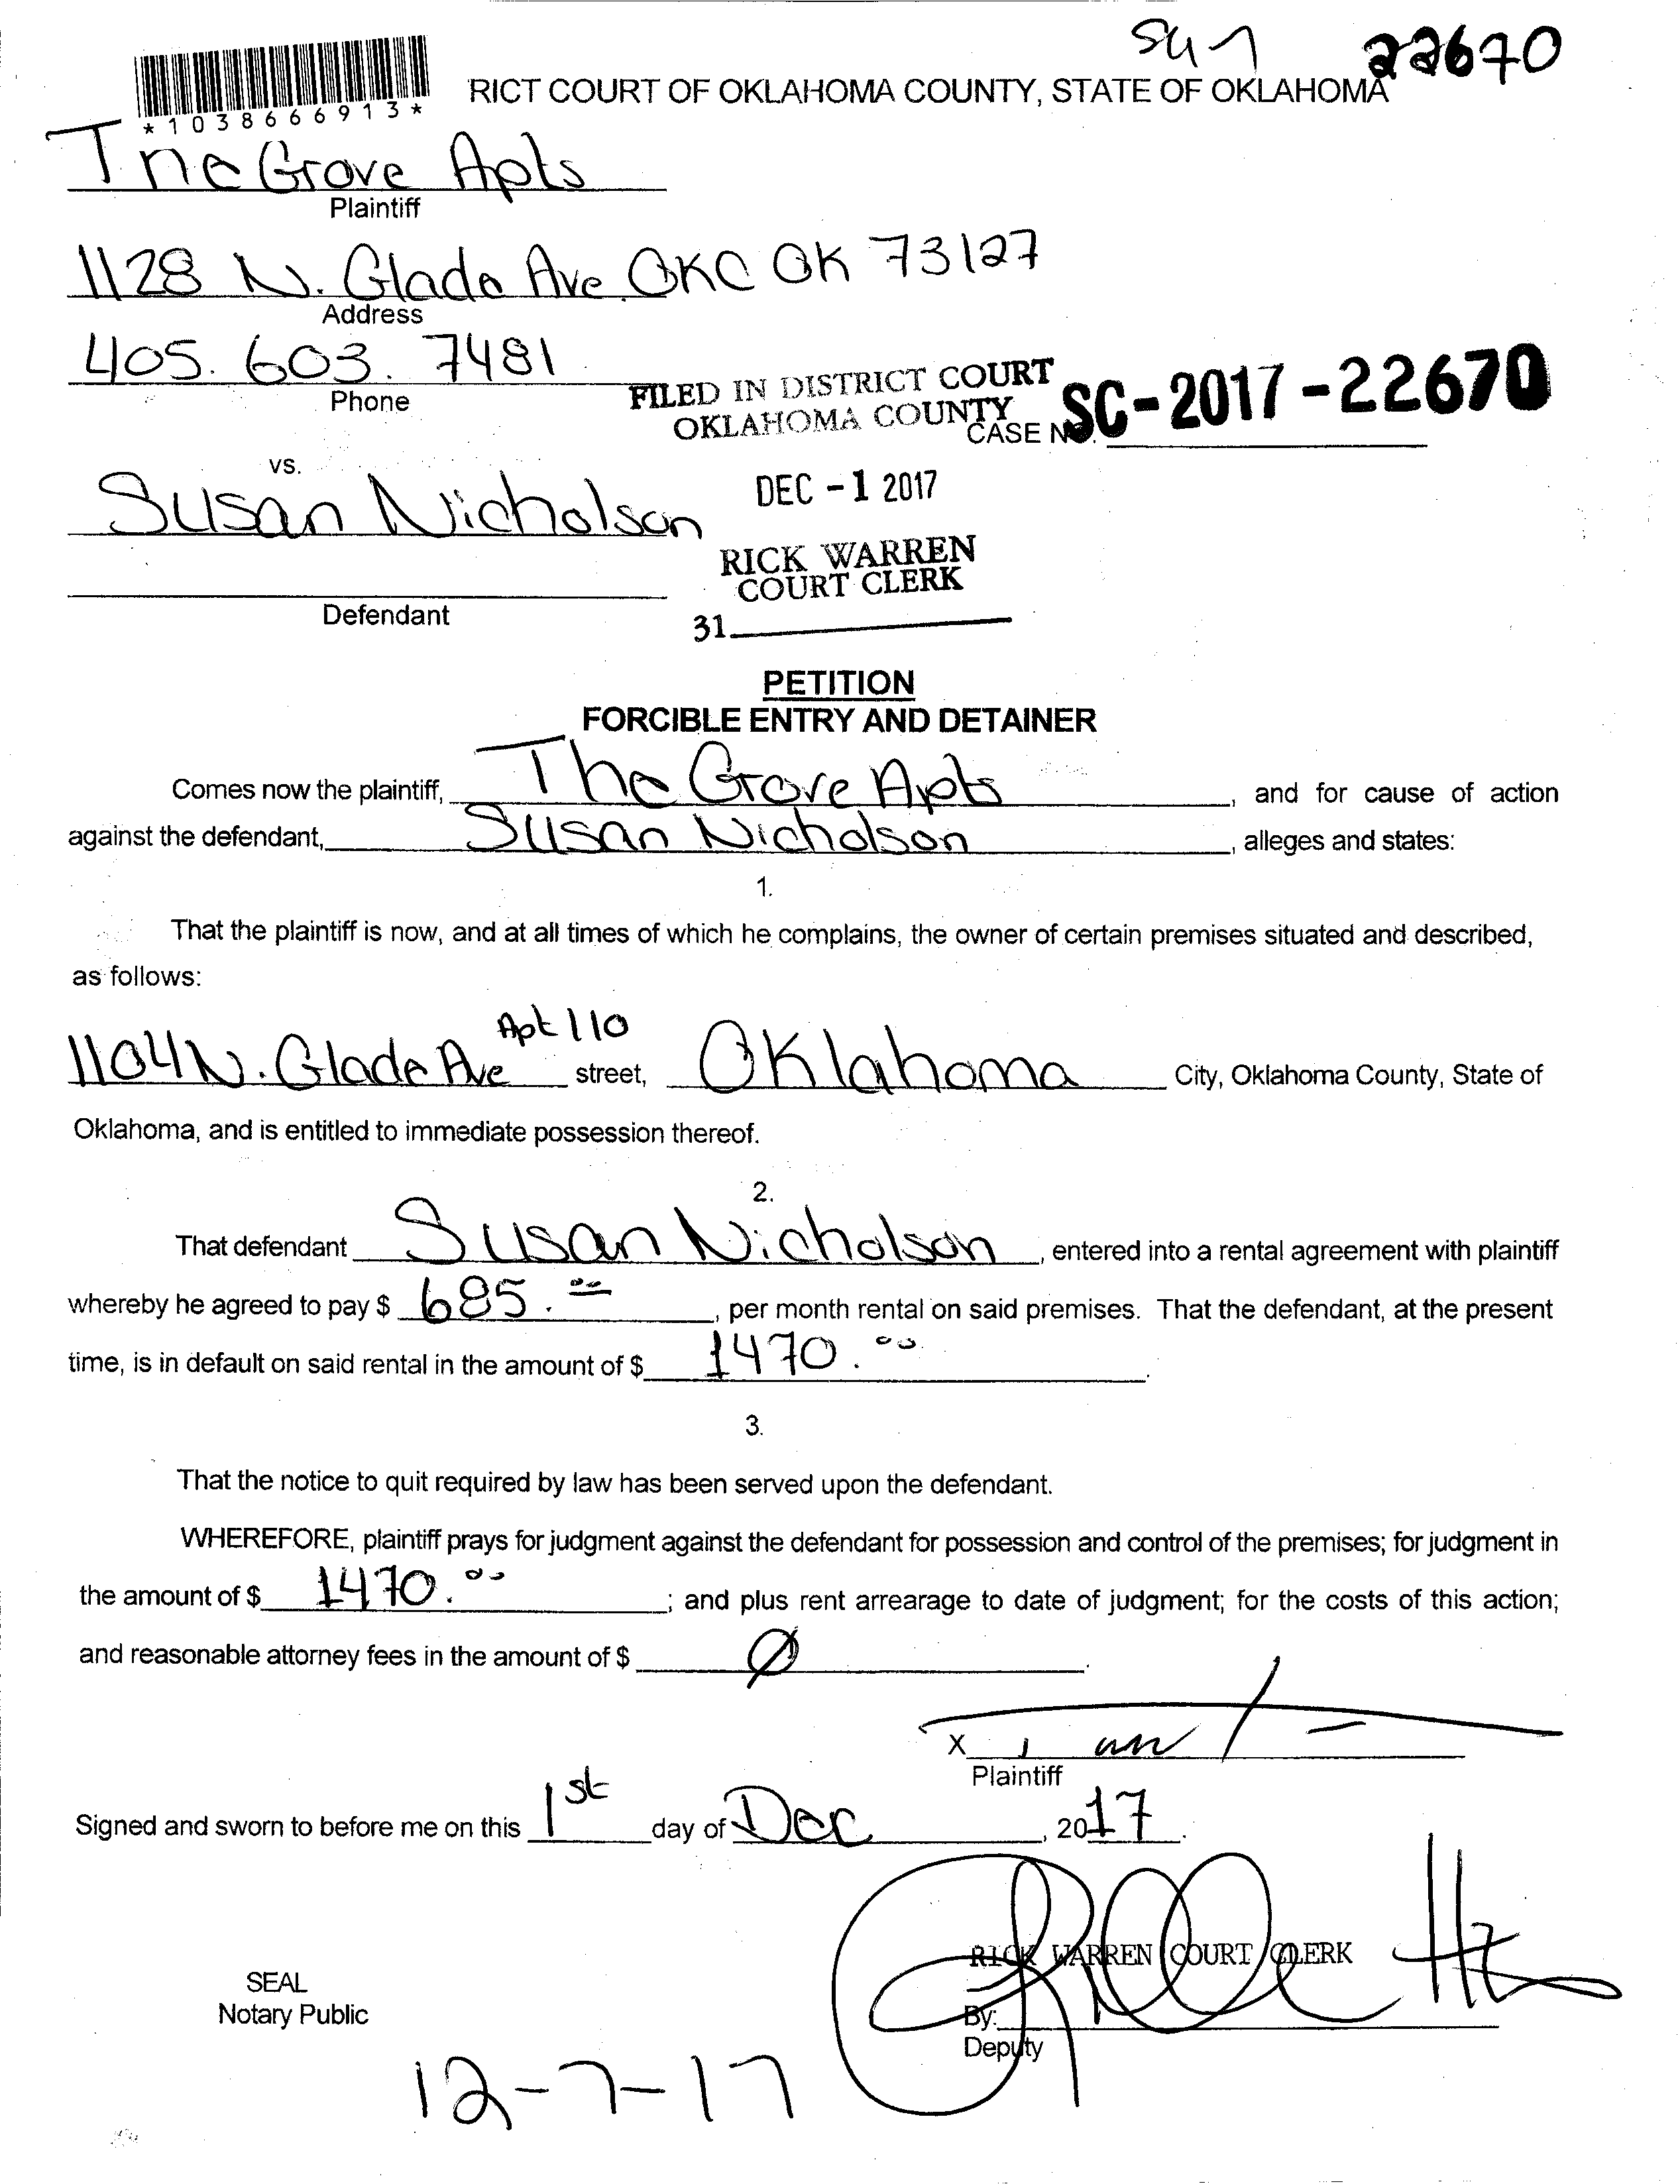 22670
RICT COURT OF OKLAHOMA COUNTY, STATE OF OKLAHOMA
*1038666913*
The Grove Apts
Plaintiff
1128 N. Glade Ave OKC OK 73127
Address
405. 603. 7481
Phone
FILED IN DISTRICT COURT
OKLAHOMA COUNTY
CASE NO. SC-2017-22670
vs.
Susan Nicholson
DEC -1 2017
RICK WARREN
COURT CLERK
Defendant
31
PETITION
FORCIBLE ENTRY AND DETAINER
Comes now the plaintiff, The Grove Apts, and for cause of action
against the defendant, Susan Nicholson, alleges and states:
1.
That the plaintiff is now, and at all times of which he complains, the owner of certain premises situated and described,
as follows:
Apt 110
1104 N. Glade Ave street, Oklahoma City, Oklahoma County, State of
Oklahoma, and is entitled to immediate possession thereof.
2.
That defendant Susan Nicholson, entered into a rental agreement with plaintiff
whereby he agreed to pay $ 685.00, per month rental on said premises. That the defendant, at the present
time, is in default on said rental in the amount of $ 1470.00.
3.
That the notice to quit required by law has been served upon the defendant.
WHEREFORE, plaintiff prays for judgment against the defendant for possession and control of the premises; for judgment in
the amount of $ 1470.00; and plus rent arrearage to date of judgment; for the costs of this action;
and reasonable attorney fees in the amount of $ Ø.
X
Plaintiff
Signed and sworn to before me on this 1st day of Dec, 2017.
RICK WARREN COURT CLERK
SEAL
Notary Public
By:
Deputy
12-7-17